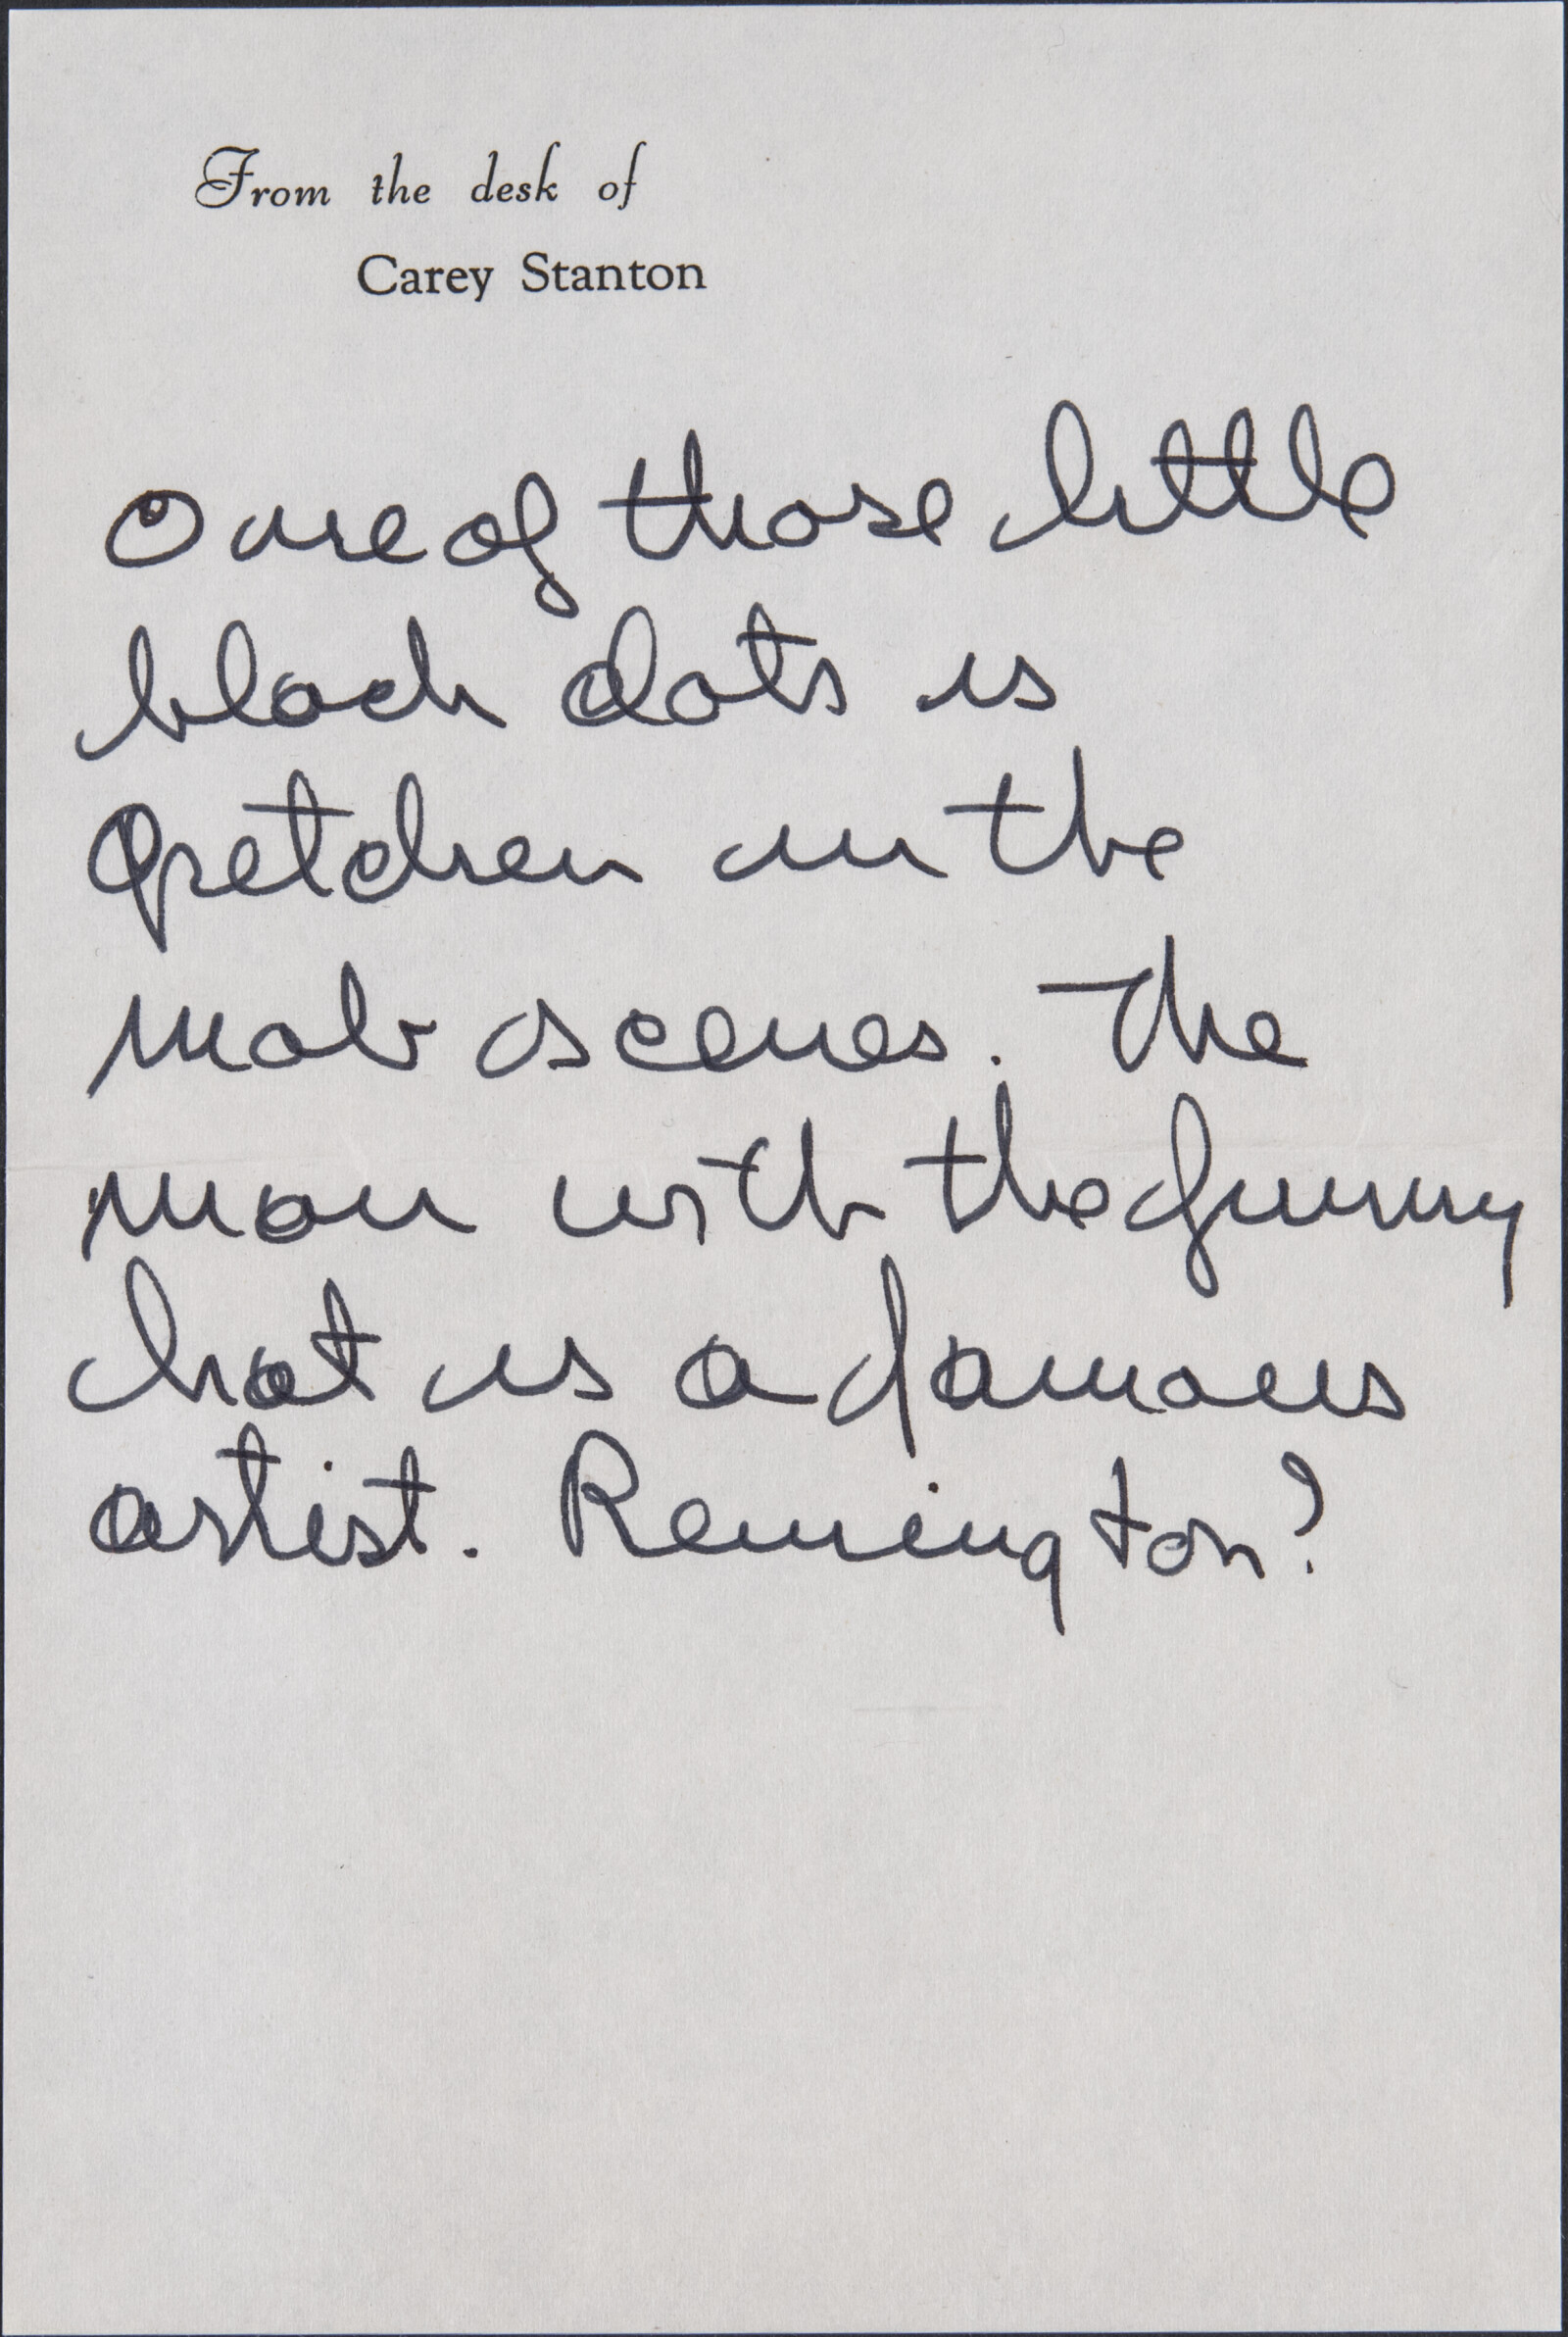 From the desk of
Carey Stanton
One of those little
black dots is
Gretchen in the
mob scenes. The
man with the funny
hat is a famous
artist. Remington?